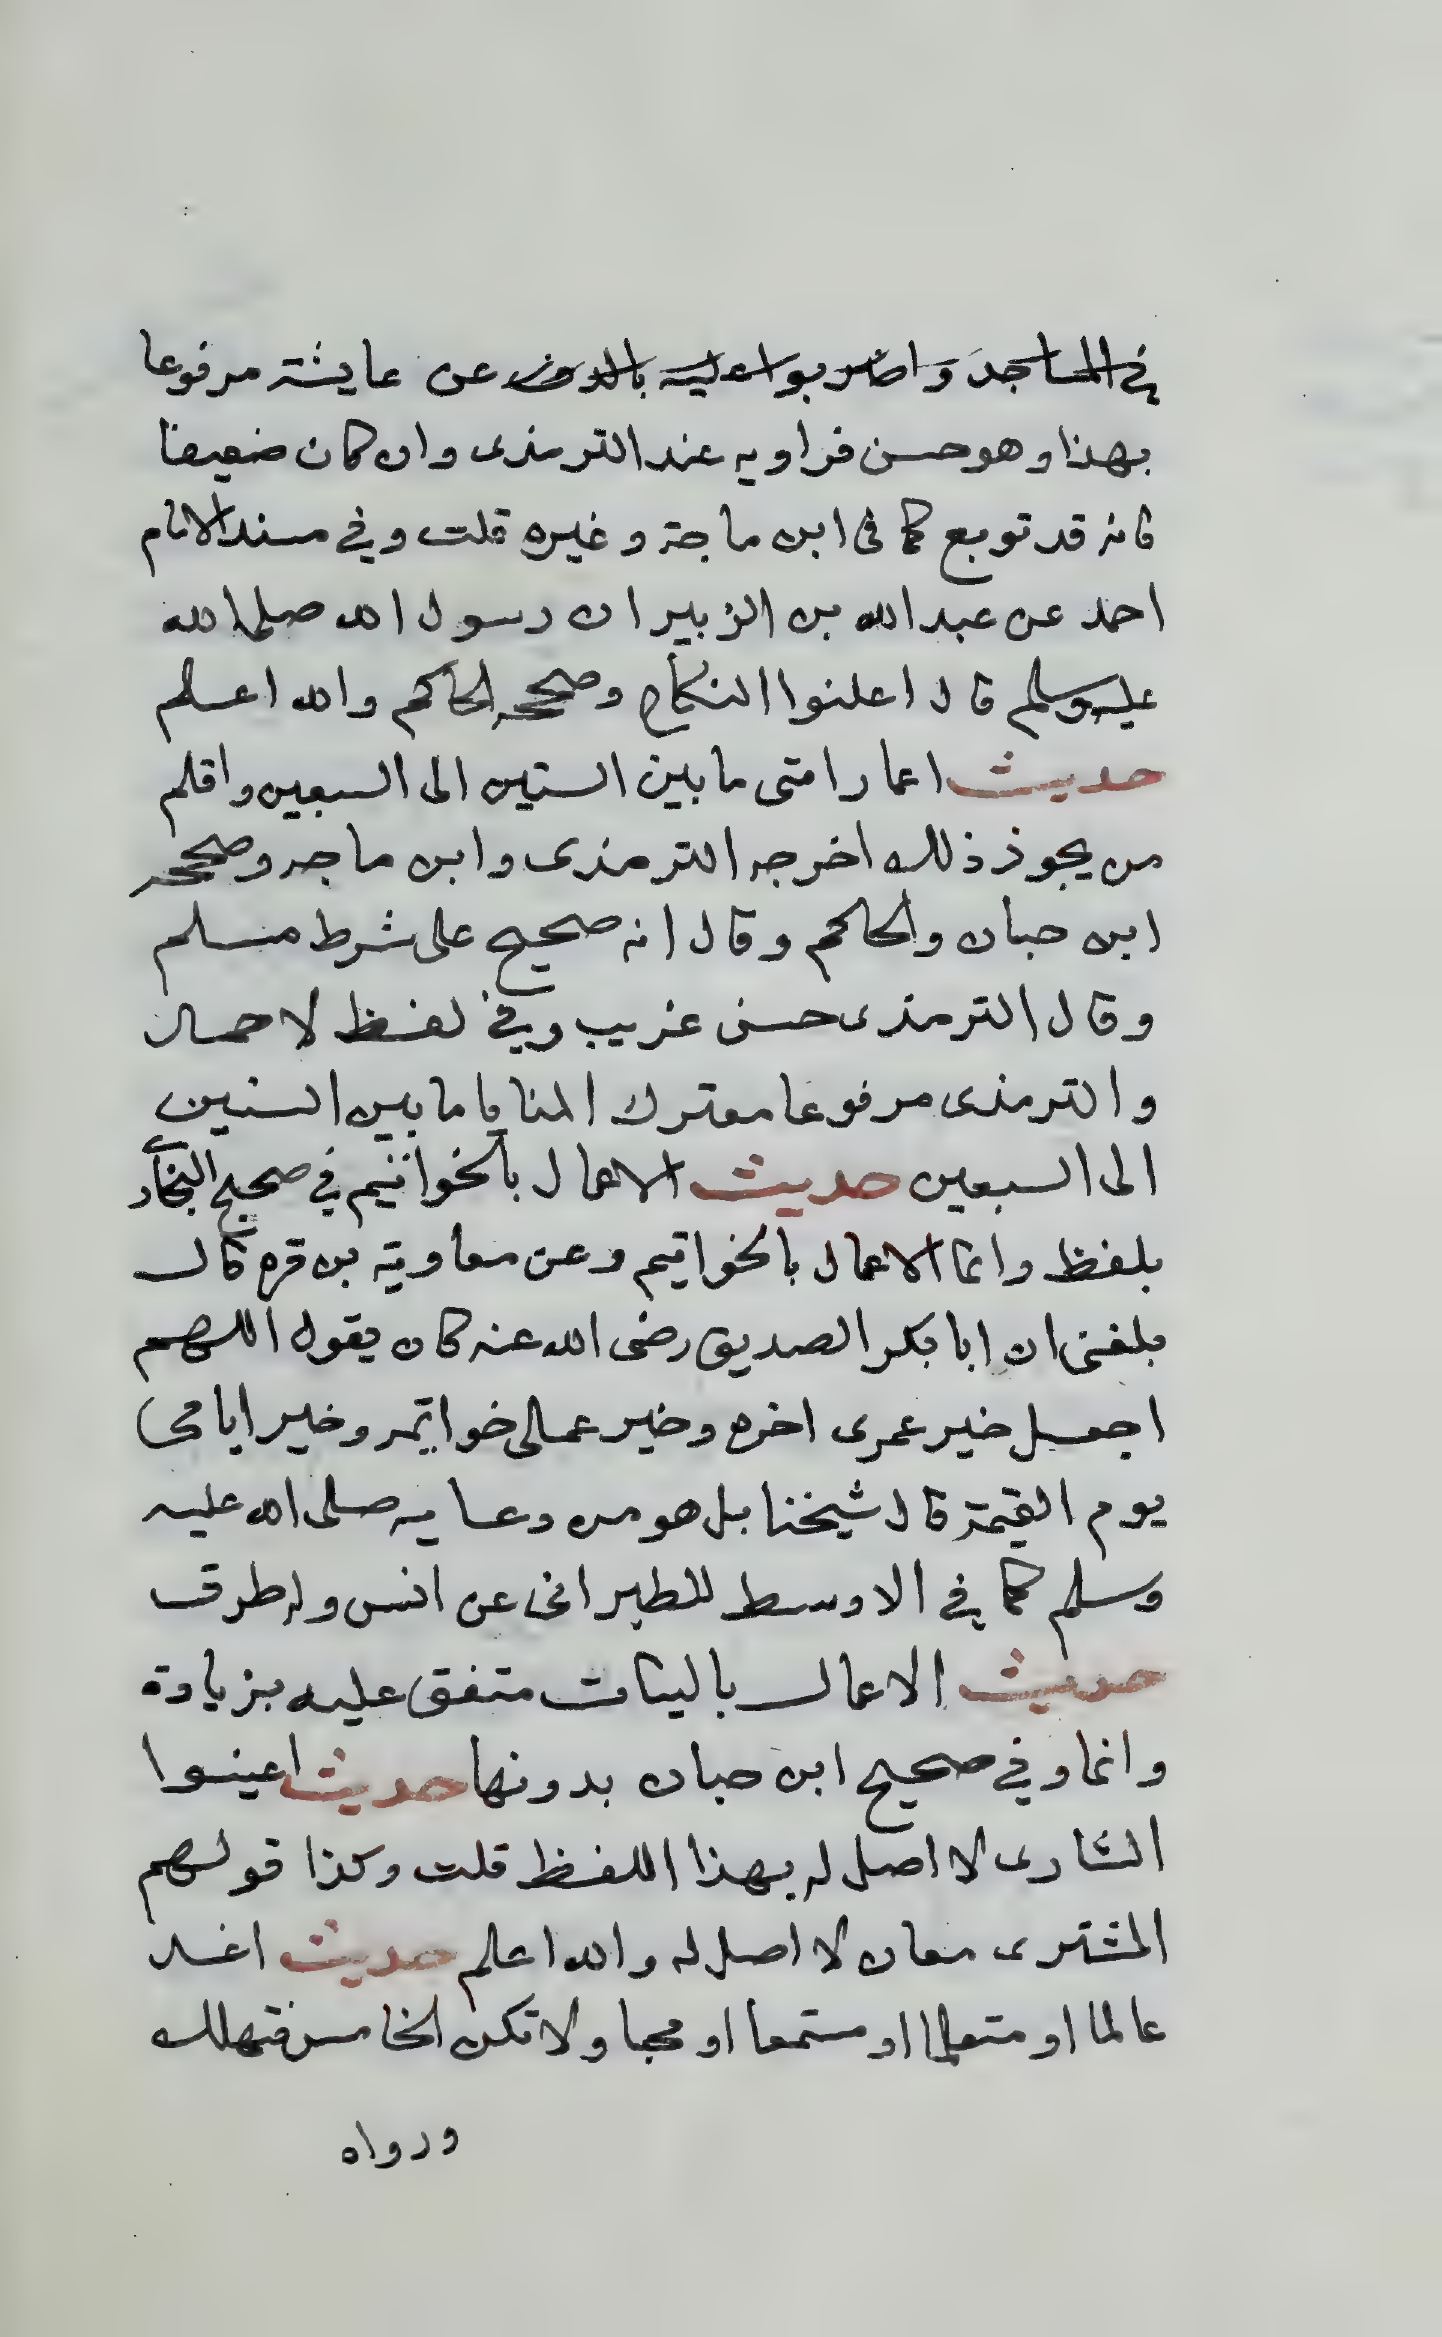 في المساجد واضربوا عليه بالدف عن عايشة مرفوعا
بهذا وهو حسن فراويه عند الترمذى وان كان ضعيفا
فانه قد توبع كما فى ابن ماجة وغيره قلت وفي مسند الامام
احمد عن عبد الله بن الزبير ان رسول الله صلى الله
عليه وسلم قال اعلنوا النكاح وصححه الحاكم والله اعلم
حديث اعمار امتى ما بين الستين الى السبعين واقلهم
من يجوز ذلك اخرجه الترمذى وابن ماجه وصححه
ابن حبان والحاكم وقال انه صحيح على شرط مسلم
وقال الترمذى حسن غريب وفي لفظ لاحمد
والترمذى مرفوعا معترك المنايا ما بين الستين
الى السبعين حديث الاعمال بالخواتيم في صحيح البخار
بلفظ وانما الاعمال بالخواتيم وعن معاوية بن قره قال
بلغنى ان ابا بكر الصديق رضى الله عنه كان يقول اللهم
اجعل خير عمرى اخره وخير عملى خواتمه وخير ايامى
يوم القيمة قال شيخنا بل هو من دعايه صلى الله عليه
وسلم كما في الاوسط للطبرانى عن انس وله طرق
حديث الاعمال بالنيات متفق عليه بزيادة
وانما وفي صحيح ابن حبان بدونها حديث اعينوا
الشارى لا اصل له بهذا اللفظ قلت وكذا قولهم
المشترى معان لا اصل له والله اعلم حديث اغد
عالما او متعلما او مستمعا او محبا ولا تكن الخامس فتهلك
ورواه